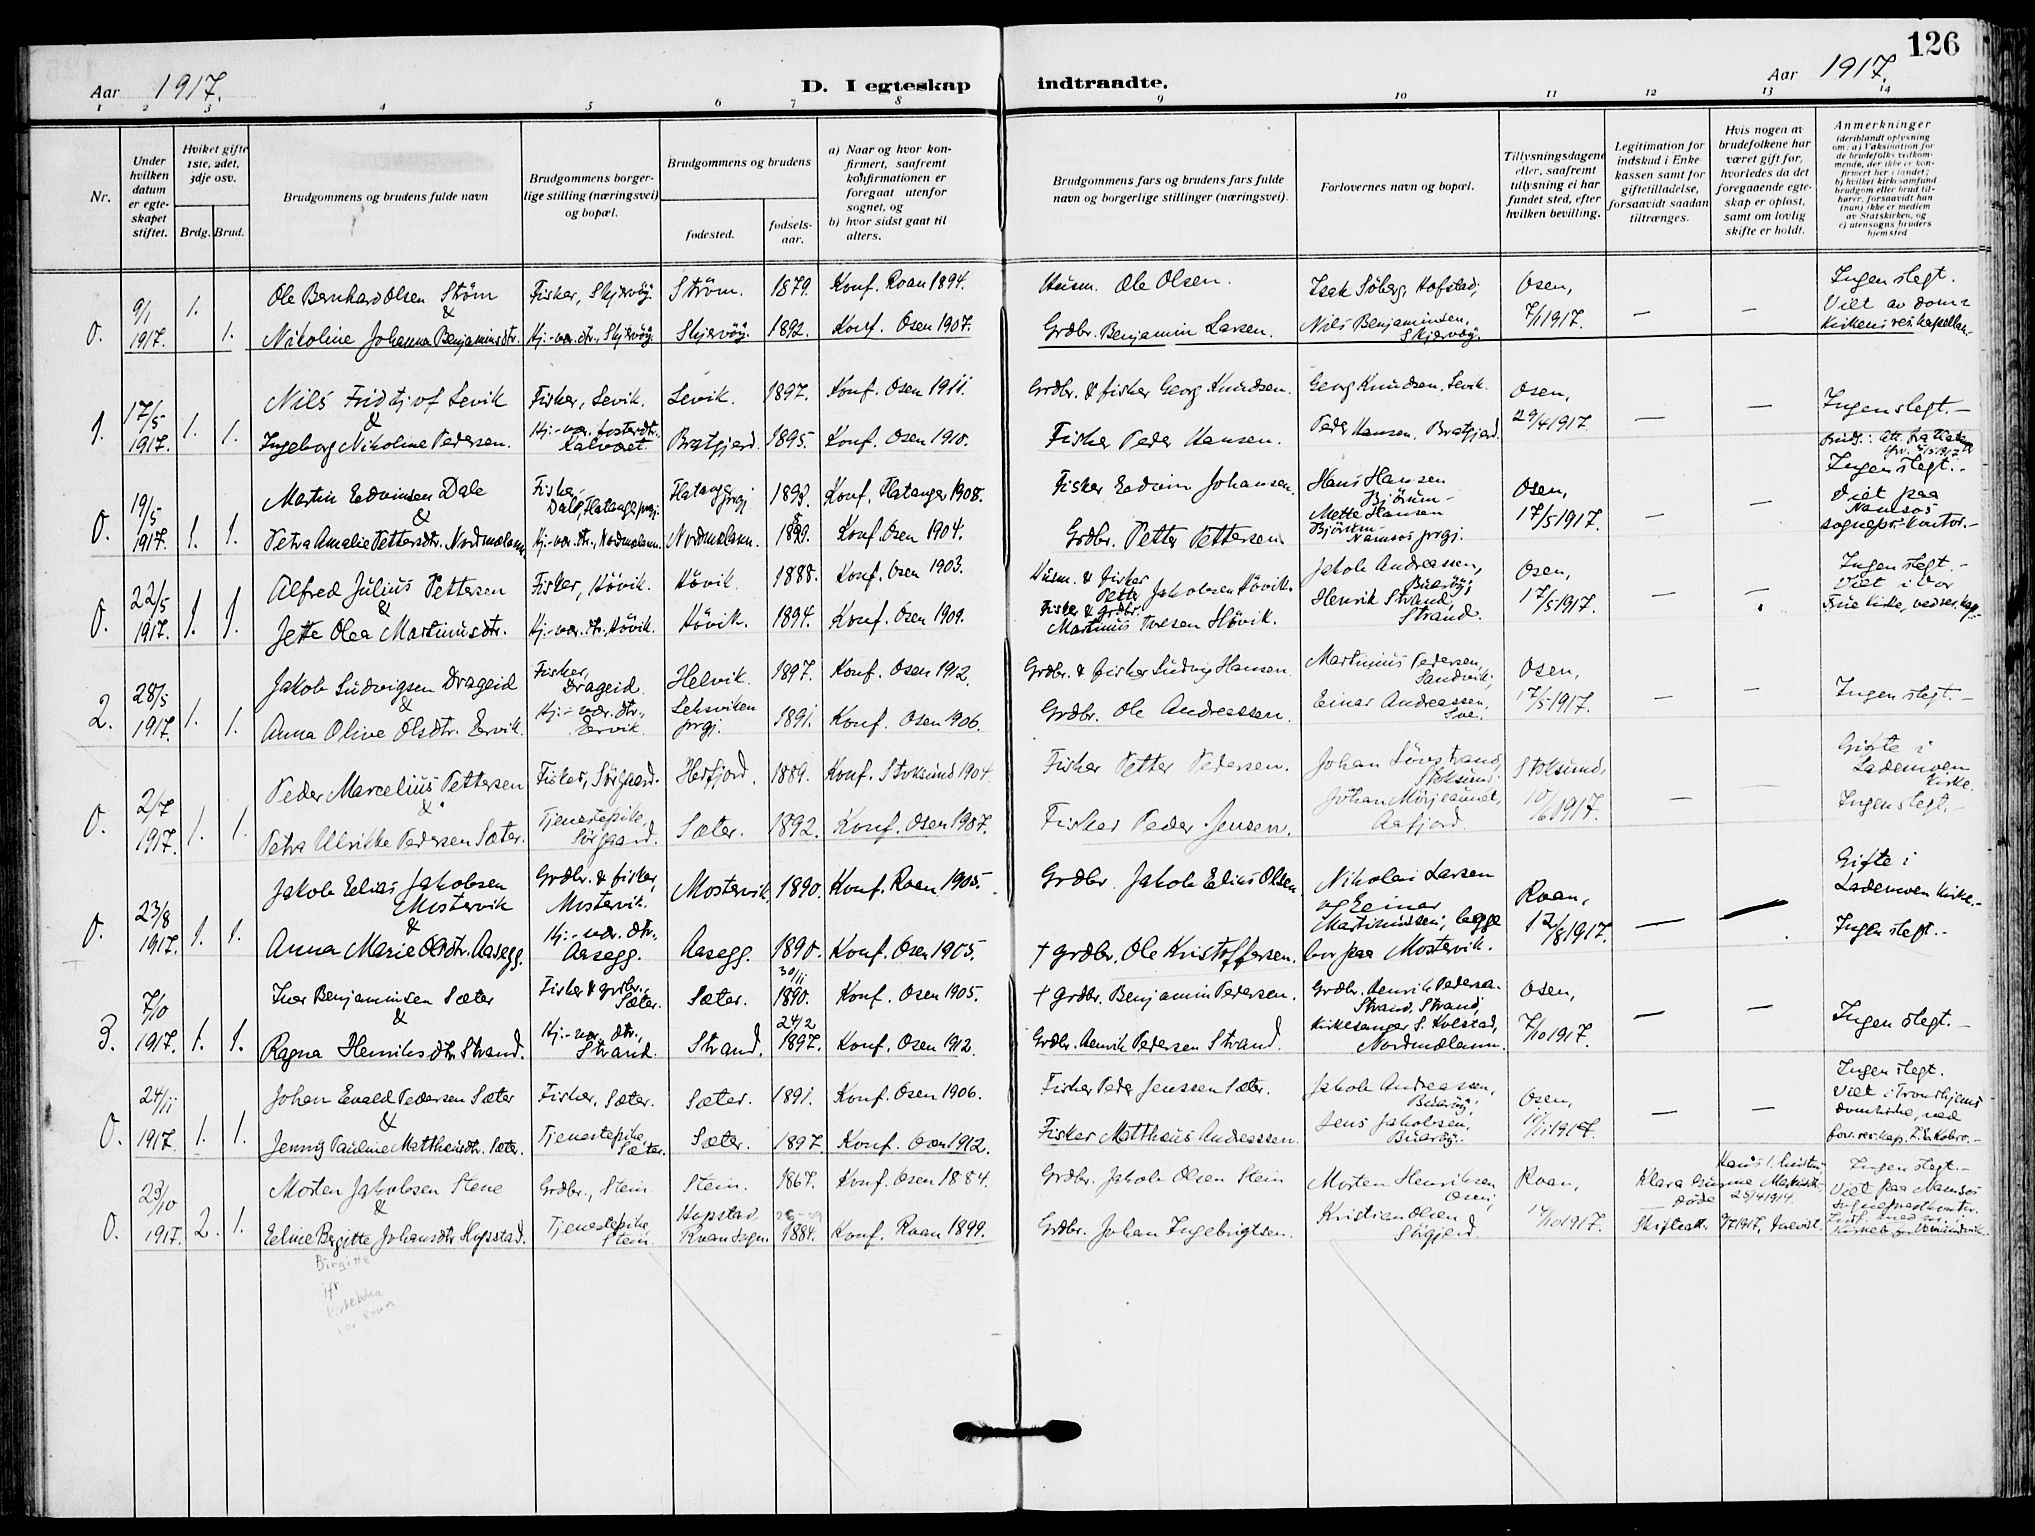 126
Aar 1917.
D. I egteskap indtraadte.
Aar 1917.
1 2 3 4 5 6 7 8 9 10 11 12 13 14
Nr.
Under hvilken datum er egteskapet stiftet.
Hviket gifte 1ste, 2det, 3dje osv.
Brdg. Brud.
Brudgommens og brudens fulde navn
Brudgommens borgerlige stilling (næringsvei) og bopæl.
Brudgommens og brudens
fødested.
fødselsaar.
a) Naar og hvor konfirmert, saafremt konfirmationen er foregaat utenfor sognet, og
b) hvor sidst gaat til alters.
Brudgommens fars og brudens fars fulde navn og borgerlige stillinger (næringsvei).
Forlovernes navn og bopæl.
Tillysningsdagene eller, saafremt tillysning ei har fundet sted, efter hvilken bevilling.
Legitimation for indskud i Enkekassen samt for giftetilladelse, forsaavidt saadan tiltrænges.
Hvis nogen av brudefolkene har været gift før, hvorledes da det foregaaende egteskap er opløst, samt om lovlig skifte er holdt.
Anmerkninger (deriblandt oplysning om: a) Vaksination for de brudefolks vedkommende, der ikke er konfirmert her i landet; b) hvilket kirkesamfund brudgom eller brud tilhører, forsaavidt han (hun) ikke er medlem av Statskirken, og c) utensogns bruders hjemsted
0. 9/1 1917. 1. 1.
Ole Bernhard Olsen Strøm Fisker, Skjervøy. Strøm. 1879. Konf. Roan 1894. Husm. Ole Olsen. Isak Søberg, Hofstad; Osen, Ingen slegt.
&
Nikoline Johanna Benjaminsdtr. Hj.-vær. dtr., Skjervøy. Skjervøy. 1892. Konf. Osen 1907. Grdbr. Benjamin Larsen. Nils Benjaminsen, Skjervøy. 7/1 1917. — — Viet av domkirkens res. kapellan.
1. 17/5 1917. 1. 1.
Nils Fridtjof Sevik Fisker, Sevik. Sevik. 1897. Konf. Osen 1911. Grdbr. & fisker Georg Knudsen. Georg Knudsen, Sevik. Osen,
&
Ingeborg Nikoline Pedersen. Hj.-vær. fosterdtr. Kalvøret. Bratgjerd. 1895. Konf. Osen 1910. Fisker Peder Hansen. Peder Hansen, Bratgjerd. 29/4 1917 — — Ingen slegt.—
0. 19/5 1917. 1. 1.
Martin Edvinsen Dale Fisker, Dale, Flatanger prgj. Flatanger prgj. 1892. Konf. Flatanger 1908. Fisker Edvin Johansen. Hans Hansen Bjørum— Osen, Ingen slegt.—
&
Petra Amalie Pettersdtr. Nordmelann. Hj.-vær. dtr., Nordmelann. Nordmelann. 1889. Konf. Osen 1904. Grdbr. Petter Pettersen Mette Hansen Bjørum— Namsos prgj. 17/5 1917. — — Viet paa Namsos sognepr. kontor.—
0. 22/5 1917. 1. 1.
Alfred Julius Pettersen Fisker, Høvik. Høvik. 1888. Konf. Osen 1903. Husm. & fisker Petter Jakobsen Høvik. Jakob Andreassen, Buarøy; Osen, Ingen slegt.—
&
Jette Olea Martinusdtr. Hj.-vær. dtr., Høvik. Høvik. 1894. Konf. Osen 1909. Fisker & Grdbr. Martinus Iversen Høvik. Henrik Strand, Strand. 17/5 1917. — — Viet i Vor Frue Kirke, ved res. kap.—
2. 28/5 1917. 1. 1.
Jakob Ludvigsen Drageid Fisker, Drageid. Helvik. 1897. Konf. Osen 1912. Grdbr. & fisker Ludvig Hansen. Martinius Pedersen, Sandvik; Osen,
&
Anna Olive Olsdtr. Ervik. Hj.-vær. dtr., Ervik. Leksviken prgj. 1891. Konf. Osen 1906. Grdbr. Ole Andreassen. Einar Andreassen, 17/5 1917. — — Ingen slegt.—
0. 2/7 1917. 1. 1.
Peder Marcelius Pettersen Fisker, Sørgaard. Herfjord. 1889. Konf. Stoksund 1904. Fisker Petter Pedersen. Stoksund. Stoksund, Gifte i Lademoen Kirke.
&
Petra Ulrikke Pedersen Sæter. Tjenestepike, Sørgaard. Sæter. 1892. Konf. Osen 1907. Fisker Peder Jensen. Aafjord. 10/6 1917. — — Ingen slegt.—
0. 23/8 1917. 1. 1.
Jakob Elias Jakobsen Mostervik Grdbr. & fisker, Mostervik. Mostervik. 1890. Konf. Roan 1905. Grdbr. Jakob Elias Olsen Nikolai Larsen og Einar Roan, Gifte i Lademoen Kirke.—
&
Anna Marie Olsdtr. Aasegg. Hj.-vær. dtr., Aasegg. Aasegg. 1890. Konf. Osen 1905. † grdbr. Ole Kristoffersen. Martinussen, begge bor paa Mostervik. 12/8 1917. — — Ingen slegt.—
3. 7/10 1917. 1. 1.
Iver Benjaminsen Sæter Fisker & grdbr., Sæter. Sæter. 30/11 1890. Konf. Osen 1905. † grdbr. Benjamin Pedersen. Grdbr. Henrik Pedersen Strand, Strand; Osen,
&
Ragna Henriksdtr. Strand. Hj.-vær. dtr., Strand. Strand. 24/2 1897. Konf. Osen 1912. Grdbr. Henrik Pedersen Strand. Kirkesanger S. Kvestad, Nordmelann. 7/10 1917. — — Ingen slegt.—
0. 24/11 1917. 1. 1.
Johan Evald Pedersen Sæter Fisker, Sæter. Sæter. 1891. Konf. Osen 1906. Fisker Peder Jenssen Sæter. Jakob Andreassen, Buarøy; Osen, Ingen slegt.
&
Jenny Pauline Mattheusdtr. Sæter. Tjenestepike, Sæter. Sæter. 1897. Konf. Osen 1912. Fisker Mattheus Andreassen. Jens Jakobsen, Buarøy. 11/11 1917. — — Viet i Trondhjems domkirke, ved
0. 29/10 1917. 2. 1.
Morten Jakobsen Stene Grdbr., Stein Stein. 1867. Konf. Osen 1884. Grdbr. Jakob Olsen Stein Morten Henriksen, Osen; Roan, Ingen slegt.—
&
Eeline Bergitte Johansdtr. Hopstad. Tjenestepike, Stein. Hopstad, Roan sogn. 1884. Konf. Roan 1899. Grdbr. Johan Ingebrigtsen. Kristian Olsen 14/10 1917. døde 25/4 1914. Skifteatt. 9/7 1917, Viet paa Namsos sogneprestkontor.
Birgitte
jfr.
Kirkeboka
for Roan